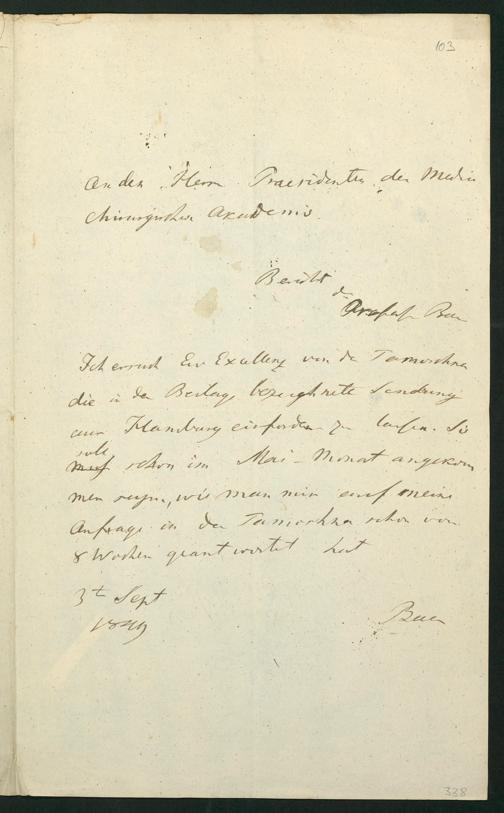 103
An den Herrn Praesidenten der Medico
chirurgischen Akademie.
Bericht
des
Professors Baer
Ich ersuche Ew Excellenz von der Tamoschna
die in der Beilage bezeichnete Sendung
aus Hamburg einfordern zu lassen. Sie
soll
muß schon im Mai-Monat angekom
men seyn, wie man mir auf meine
Anfrage in der Tamoschna schon vor
8 Wochen geantwortet hat
3t Sept
1849
Baer
338